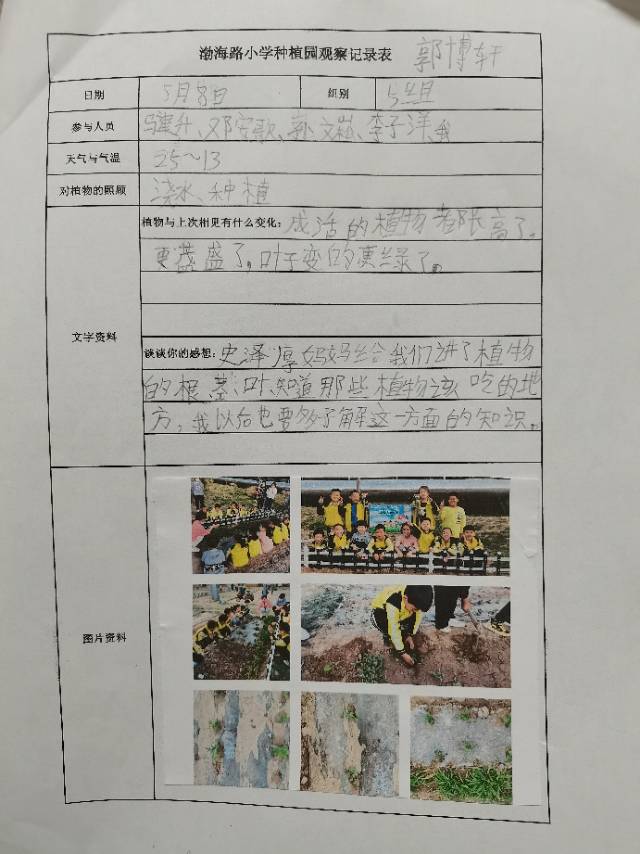 渤海路小学种植园观察记录表 郭博轩
日期 5月8日 组别 5组
参与人员 骏升、邓安歌、郭文崧、李子洋、我
天气与气温 25~13
对植物的照顾 浇水、种植
植物与上次相见有什么变化：成活的植物都长高了。
更茂盛了。叶子变的更绿了。
文字资料
谈谈你的感想：史泽厚妈妈给我们讲了植物
的根、茎、叶，知道那些植物该吃的地
方，我以后也要多了解这一方面的知识。
图片资料